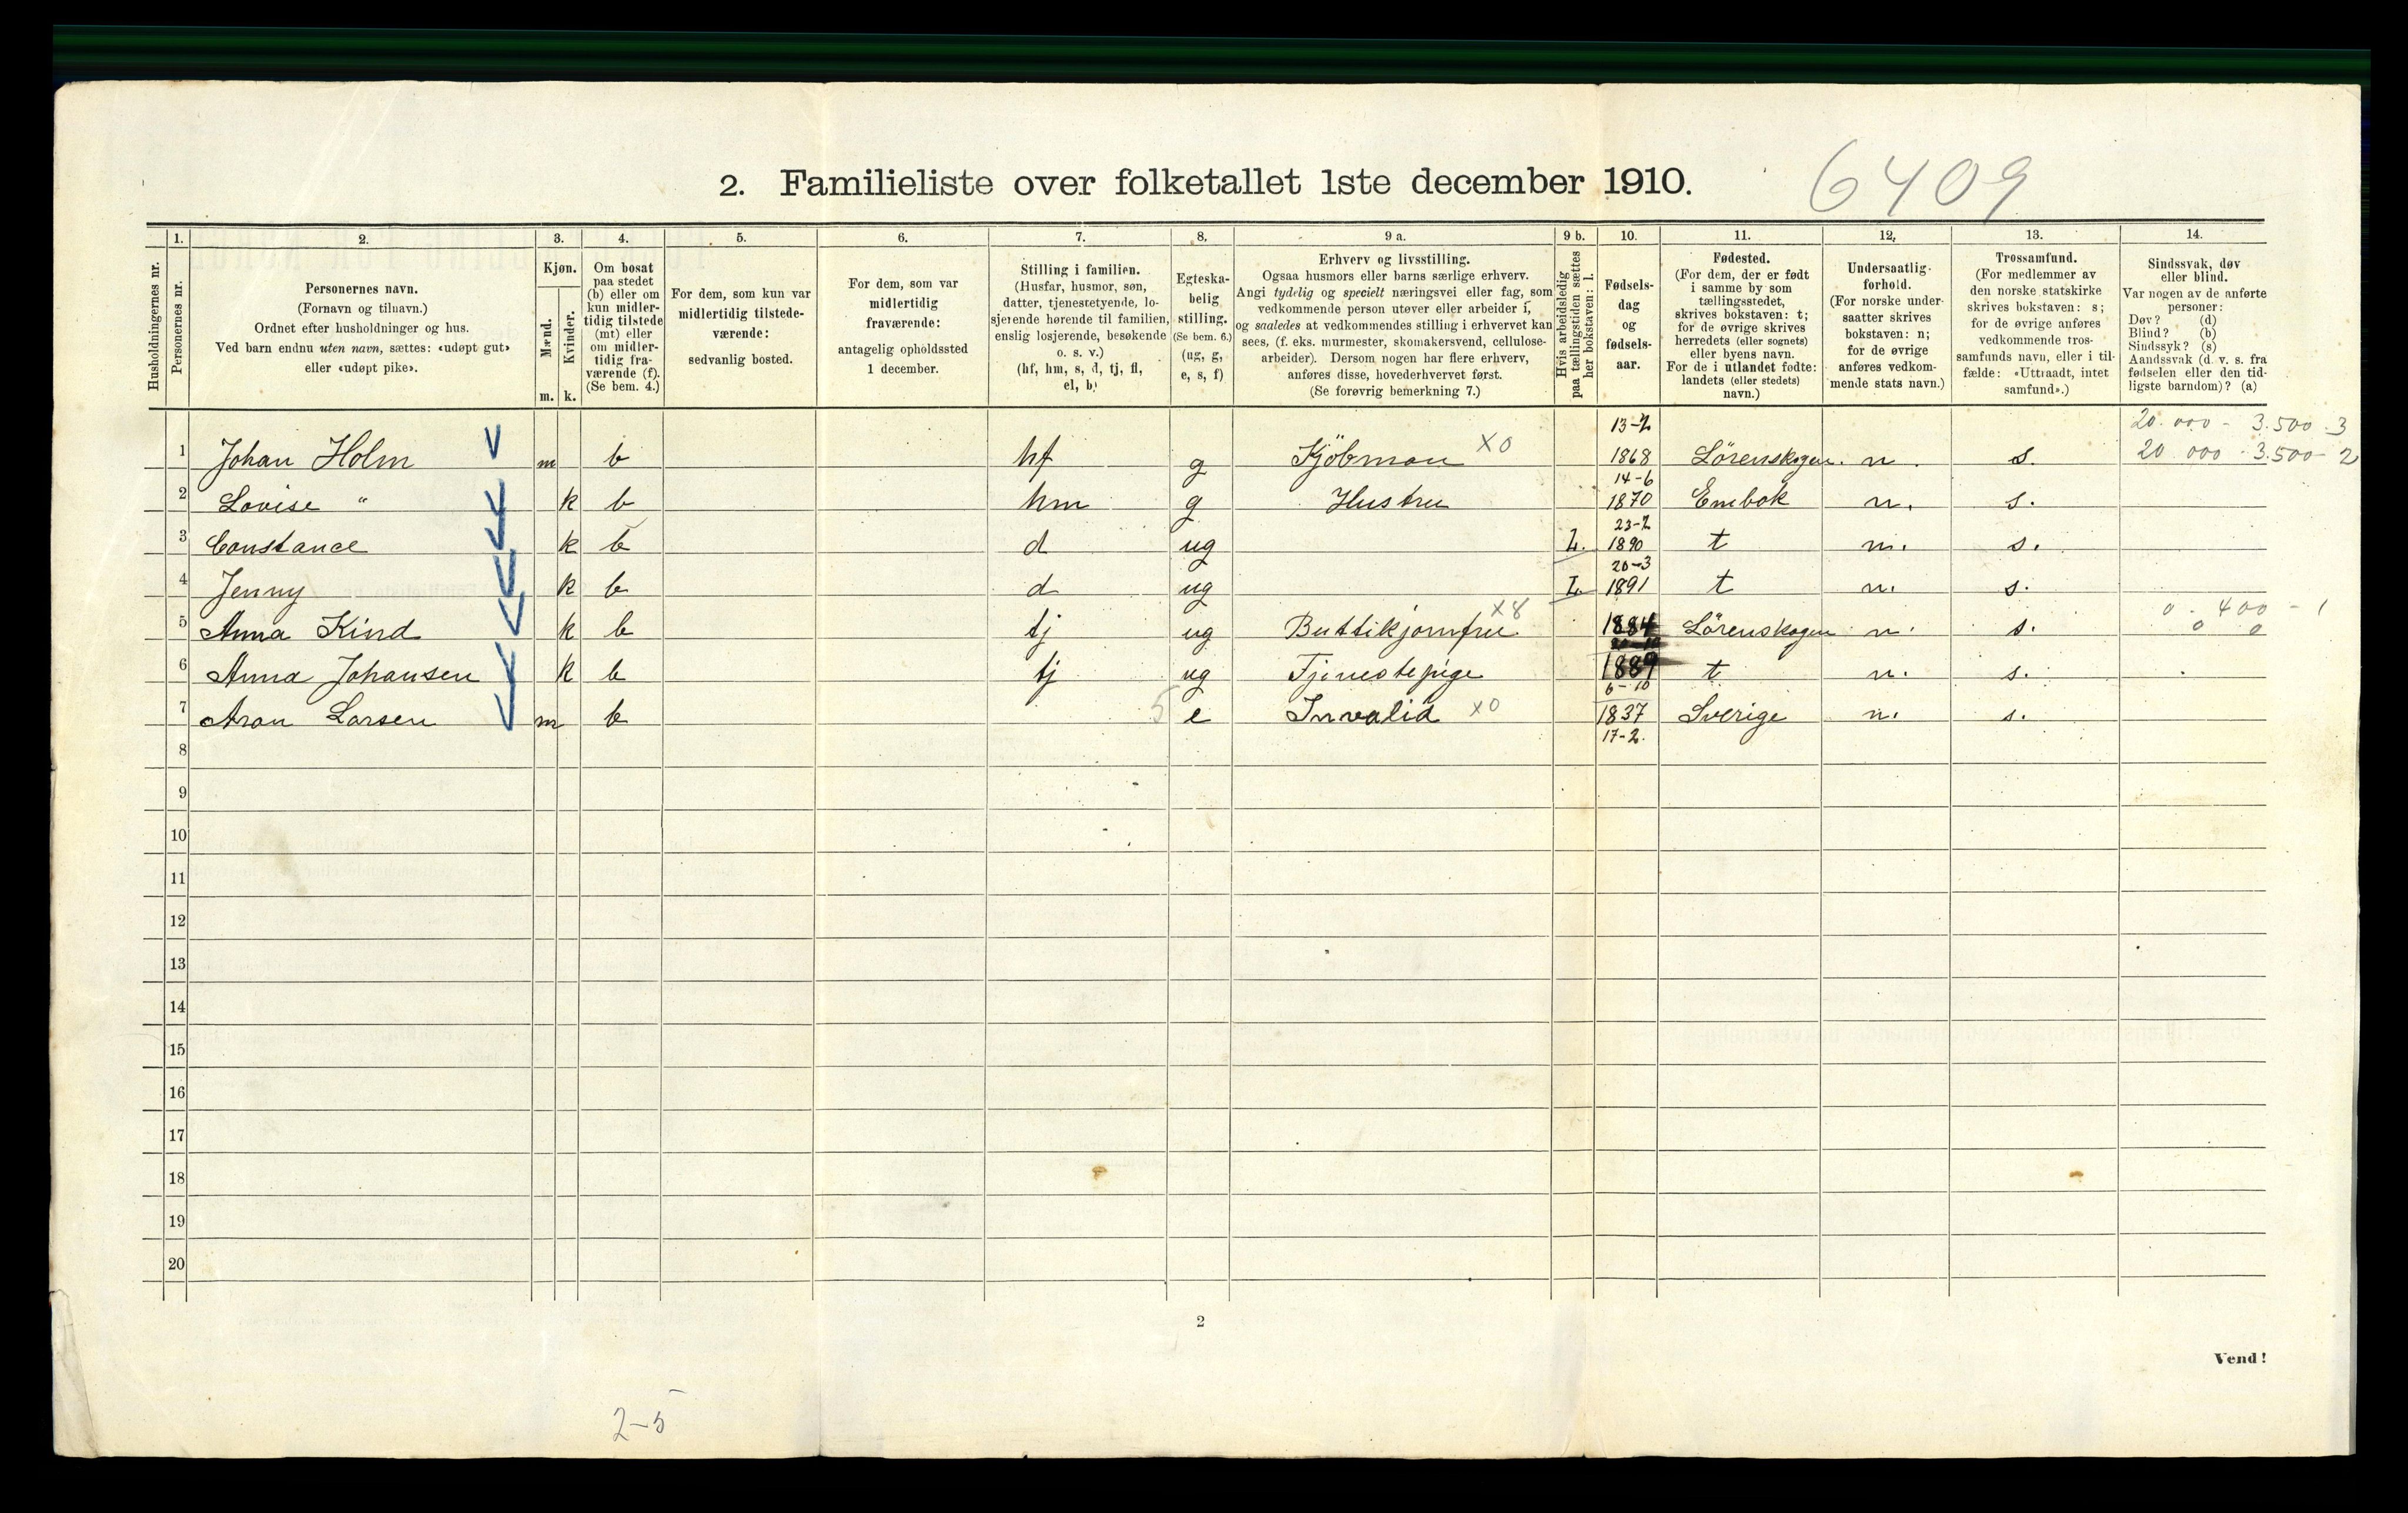 2. Familieliste over folketallet 1ste december 1910.
6409
Husholdningernes nr.
1. Personernes nr.
2.
Personernes navn.
(Fornavn og tilnavn.)
Ordnet efter husholdninger og hus.
Ved barn endnu uten navn, sættes: «udøpt gut»
eller «udøpt pike».
3.
Kjøn.
Mænd. m.
Kvinder. k.
4.
Om bosat
paa stedet
(b) eller om
kun midler-
tidig tilstede
(mt) eller
om midler-
tidig fra-
værende (f).
(Se bem. 4.)
5.
For dem, som kun var
midlertidig tilstede-
værende:
sedvanlig bosted.
6.
For dem, som var
midlertidig
fraværende:
antagelig opholdssted
1 december.
7.
Stilling i familien.
(Husfar, husmor, søn,
datter, tjenestetyende, lo-
sjerende hørende til familien,
enslig losjerende, besøkende
o. s. v.)
(hf, hm, s, d, tj, fl,
el, b)
8.
Egteska-
belig
stilling.
(Se bem. 6.)
(ug, g,
e, s, f)
9 a.
Erhverv og livsstilling.
Ogsaa husmors eller barns særlige erhverv.
Angi tydelig og specielt næringsvei eller fag, som
vedkommende person utøver eller arbeider i,
og saaledes at vedkommendes stilling i erhvervet kan
sees, (f. eks. murmester, skomakersvend, cellulose-
arbeider). Dersom nogen har flere erhverv,
anføres disse, hovederhvervet først.
(Se forøvrig bemerkning 7.)
9 b.
Hvis arbeidsledig
paa tællingstiden sættes
her bokstaven: l.
10.
Fødsels-
dag
og
fødsels-
aar.
11.
Fødested.
(For dem, der er født
i samme by som
tællingsstedet,
skrives bokstaven: t;
for de øvrige skrives
herredets (eller sognets)
eller byens navn.
For de i utlandet fødte:
landets (eller stedets)
navn.)
12.
Undersaatlig-
forhold.
(For norske under-
saatter skrives
bokstaven: n;
for de øvrige
anføres vedkom-
mende stats navn.)
13.
Trossamfund.
(For medlemmer av
den norske statskirke
skrives bokstaven: s;
for de øvrige anføres
vedkommende tros-
samfunds navn, eller i til-
fælde: «Uttraadt, intet
samfund».)
14.
Sindssvak, døv
eller blind.
Var nogen av de anførte
personer:
Døv? (d)
Blind? (b)
Sindssyk? (s)
Aandssvak (d. v. s. fra
fødselen eller den tid-
ligste barndom)? (a)
13-2 20.000 - 3.500. 3
1 Johan Holm m b hf g Kjöbman x0 1868 Lörenskogen. n. s. 20 000 - 3.500 - 2
14-6
2 Lovise " k b hm g Hustru 1870 Enebak n. s.
23-2
3 Constance k b d ug L. 1890 t n. s.
20-3
4 Jenny k b d ug L 1891 t n. s.
x8 0 - 400 - 1
5 Anna Kind k b tj ug Buttikjomfru 1884 Lörenskogen n. s. 0 0
6 Anna Johansen k b tj ug Tjenestepige 1889 t n. s.
6-10
7 Aron Larsen m b 5 e Invalid x0 1837 Sverige n. s.
17-2.
8
9
10
11
12
13
14
15
16
17
18
19
20
2
Vend!
2-5